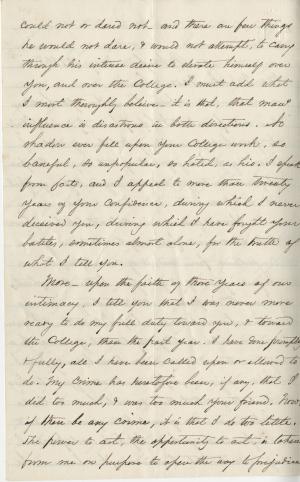 could not or dared not – and there are few things
he would not dare, & would not attempt, to carry
through his intense desire to elevate himself over
you, and over the College. I must add what
I most thoroughly believe – it is that, that man's
influence is disastrous in both directions. No
shadow ever fell upon your College work, so
baneful, so unpopular, so hated, as his. I speak
from facts, and I appeal to more than twenty
years of your confidence, during which I never
deceived you, during which I have fought your
battles, sometimes almost alone, for the truth of
what I tell you.
More – upon the faith of those years of our
intimacy, I tell you that I was never more
ready to do my full duty toward you, & toward
the College, than the past year. I have done promptly
& fully, all I have been called upon or allowed to
do. My crime has heretofore been, if any, that I
did too much, & was too much your friend. Now,
if there be any crime, it is that I do too little.
The power to act, the opportunity to act, is taken
from me on purpose to open the way to prejudice